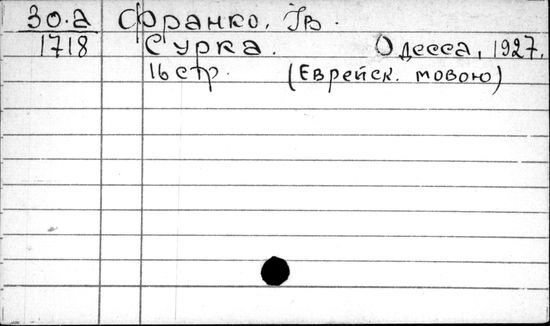 30.а Франко, Ів.
1718 Сурка. Одесса, 1927.
16 стр. (Еврейск. мовою)